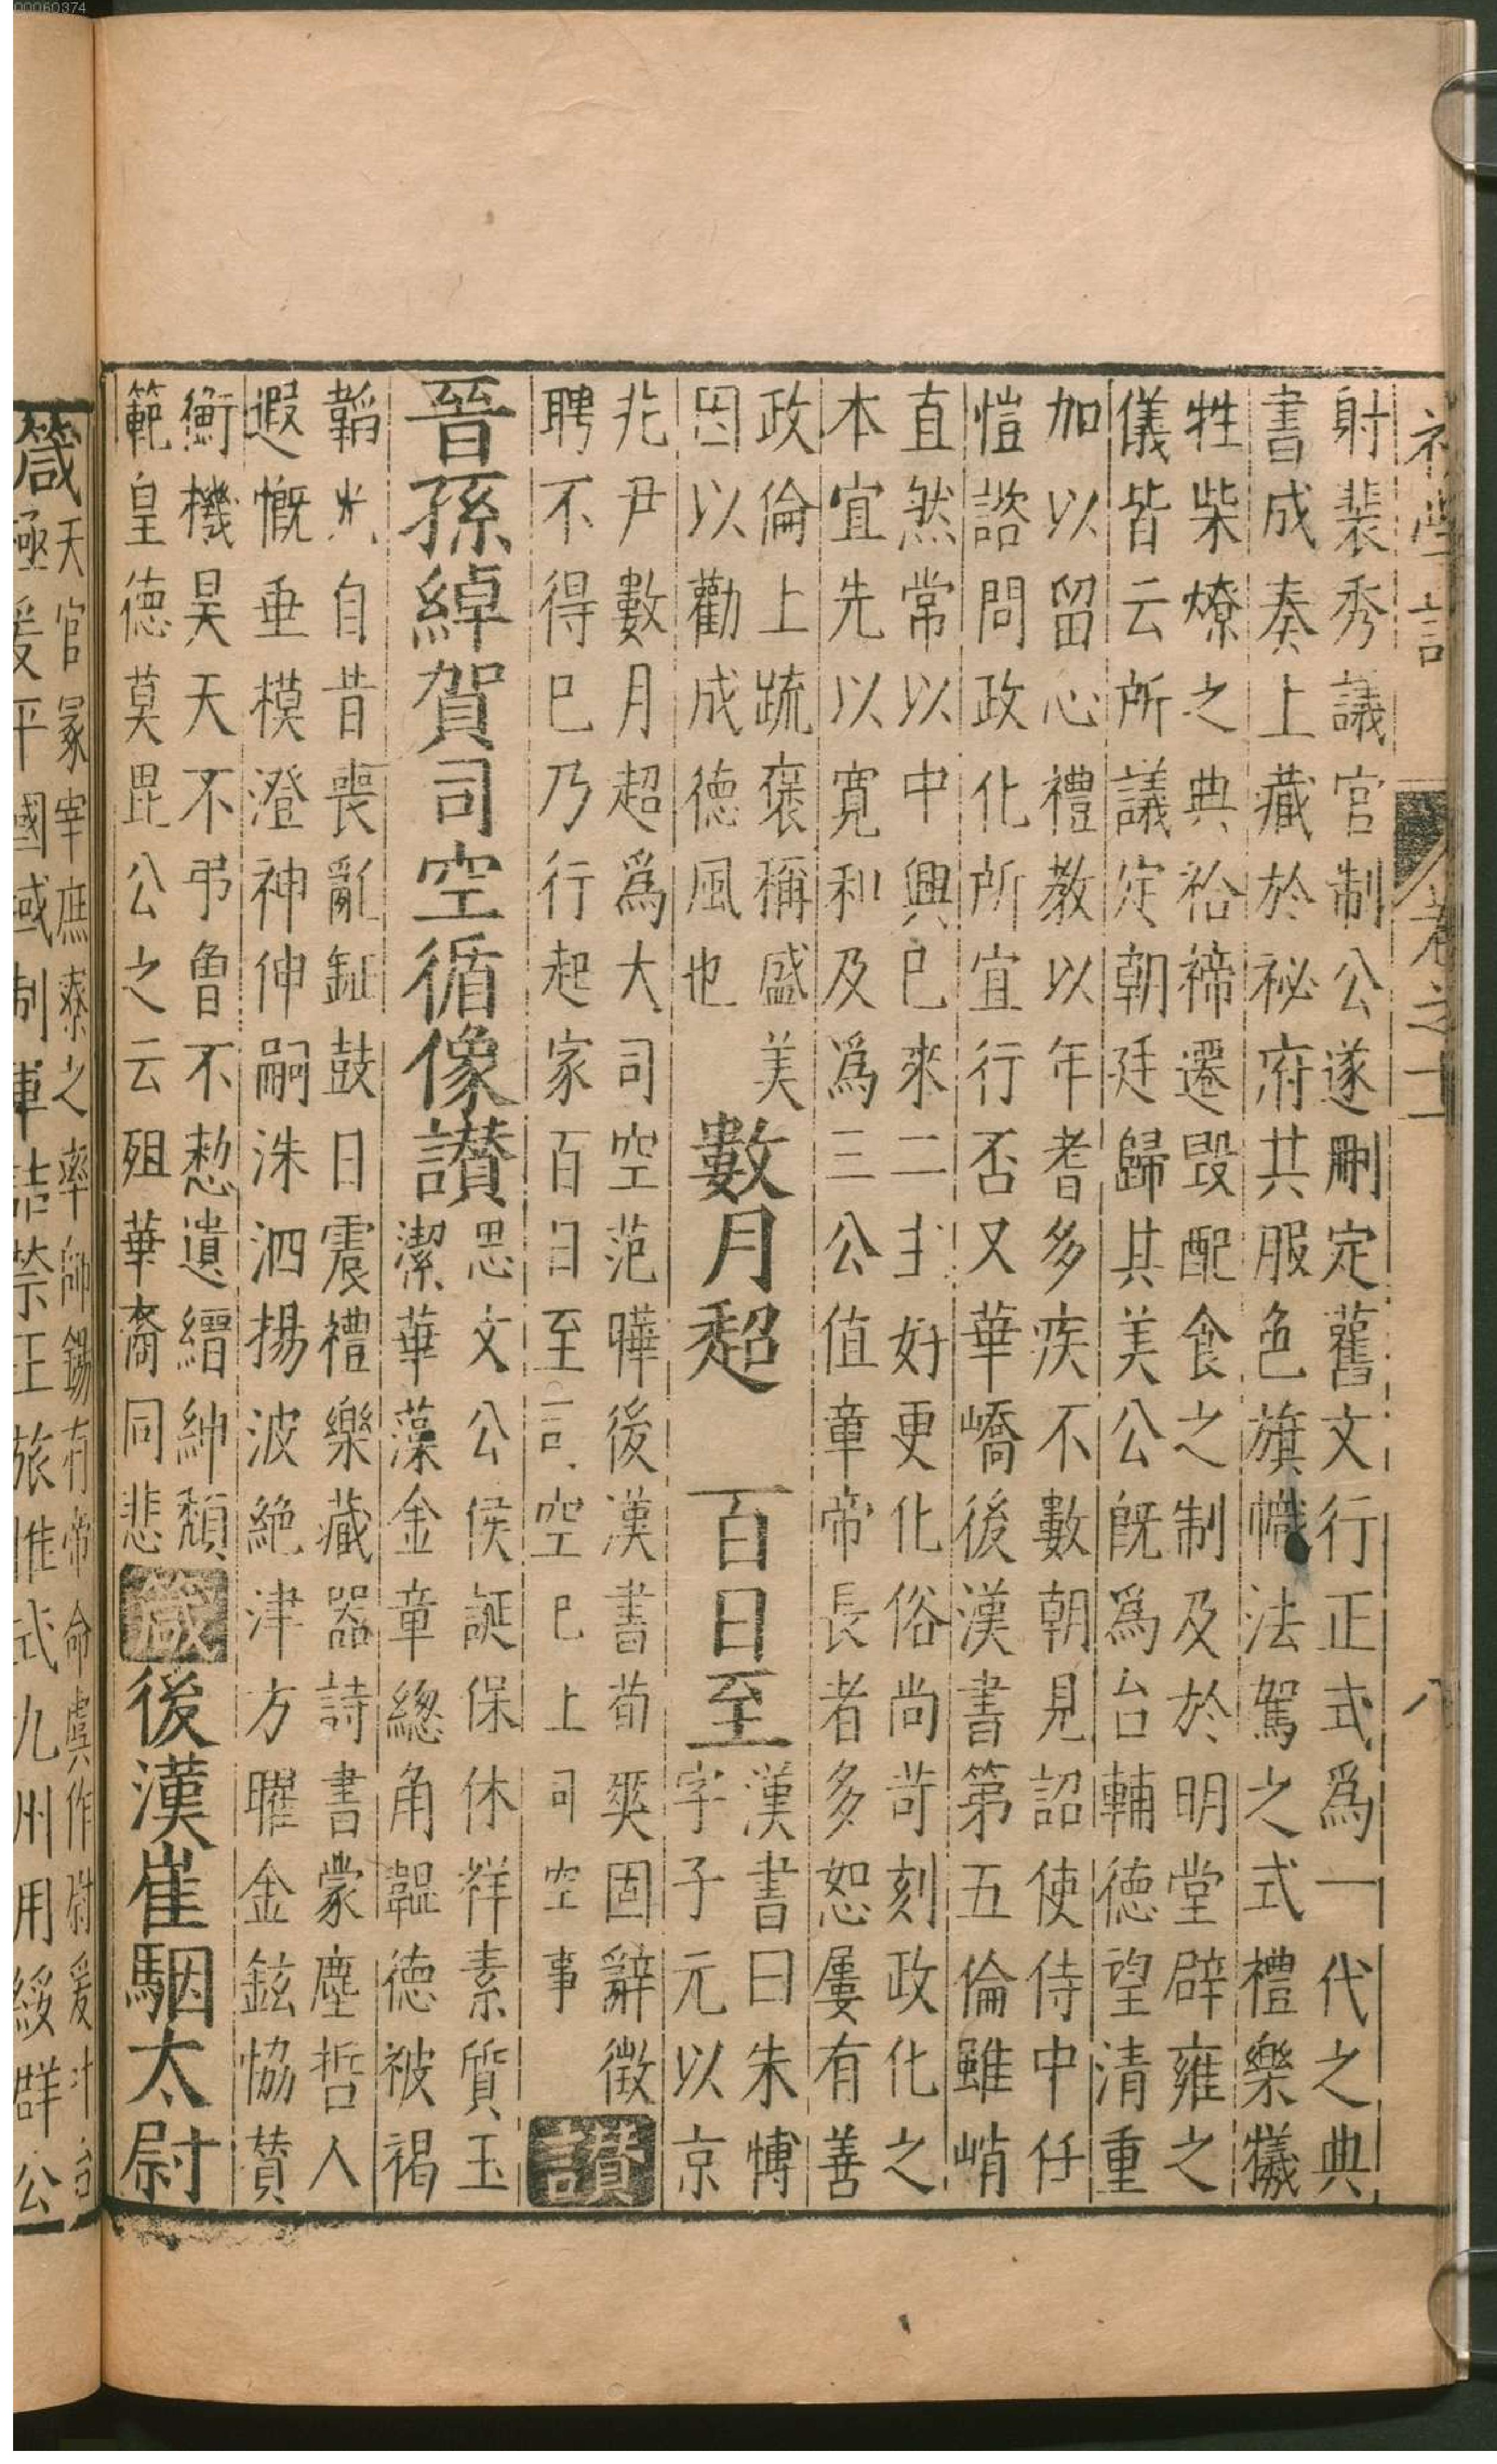 初學記 卷之十一 八
射裴秀議官制公遂刪定舊文行正式爲一代之典
書成奏上藏於祕府其服色旗幟法駕之式禮樂犧
牲柴燎之典祫禘遷毀配食之制及於明堂辟雍之
儀皆云所議定朝廷歸其美公旣爲台輔德望清重
加以留心禮教以年耆多疾不數朝見詔使侍中任
愷諮問政化所宜行否又華嶠後漢書第五倫雖峭
直然常以中興已來二主好更化俗尚苛刻政化之
本宜先以寬和及爲三公值章帝長者多恕屢有善
政倫上疏褒稱盛美
因以勸成德風也
數月超 百日至
漢書曰朱博
字子元以京
兆尹數月超爲大司空范曄後漢書荀爽固辭徵
聘不得已乃行起家百日至司空已上司空事
讃
晉孫綽賀司空循像讃
思文公侯誕保休祥素質玉
潔華藻金章總角韞德被褐
韜光自昔喪亂鉦鼓日震禮樂藏器詩書蒙塵哲人
遐慨垂模澄神伸嗣洙泗揚波絶津方曜金鉉協贊
衡機昊天不弔魯不憖遺縉紳頽
範皇德莫毘公之云殂華裔同悲
箴
後漢崔駰太尉
箴
天官冢宰庶寮之率師錫有帝命虞作尉爰
極爰平國域制軍詰禁王旅惟式九州用綏群公